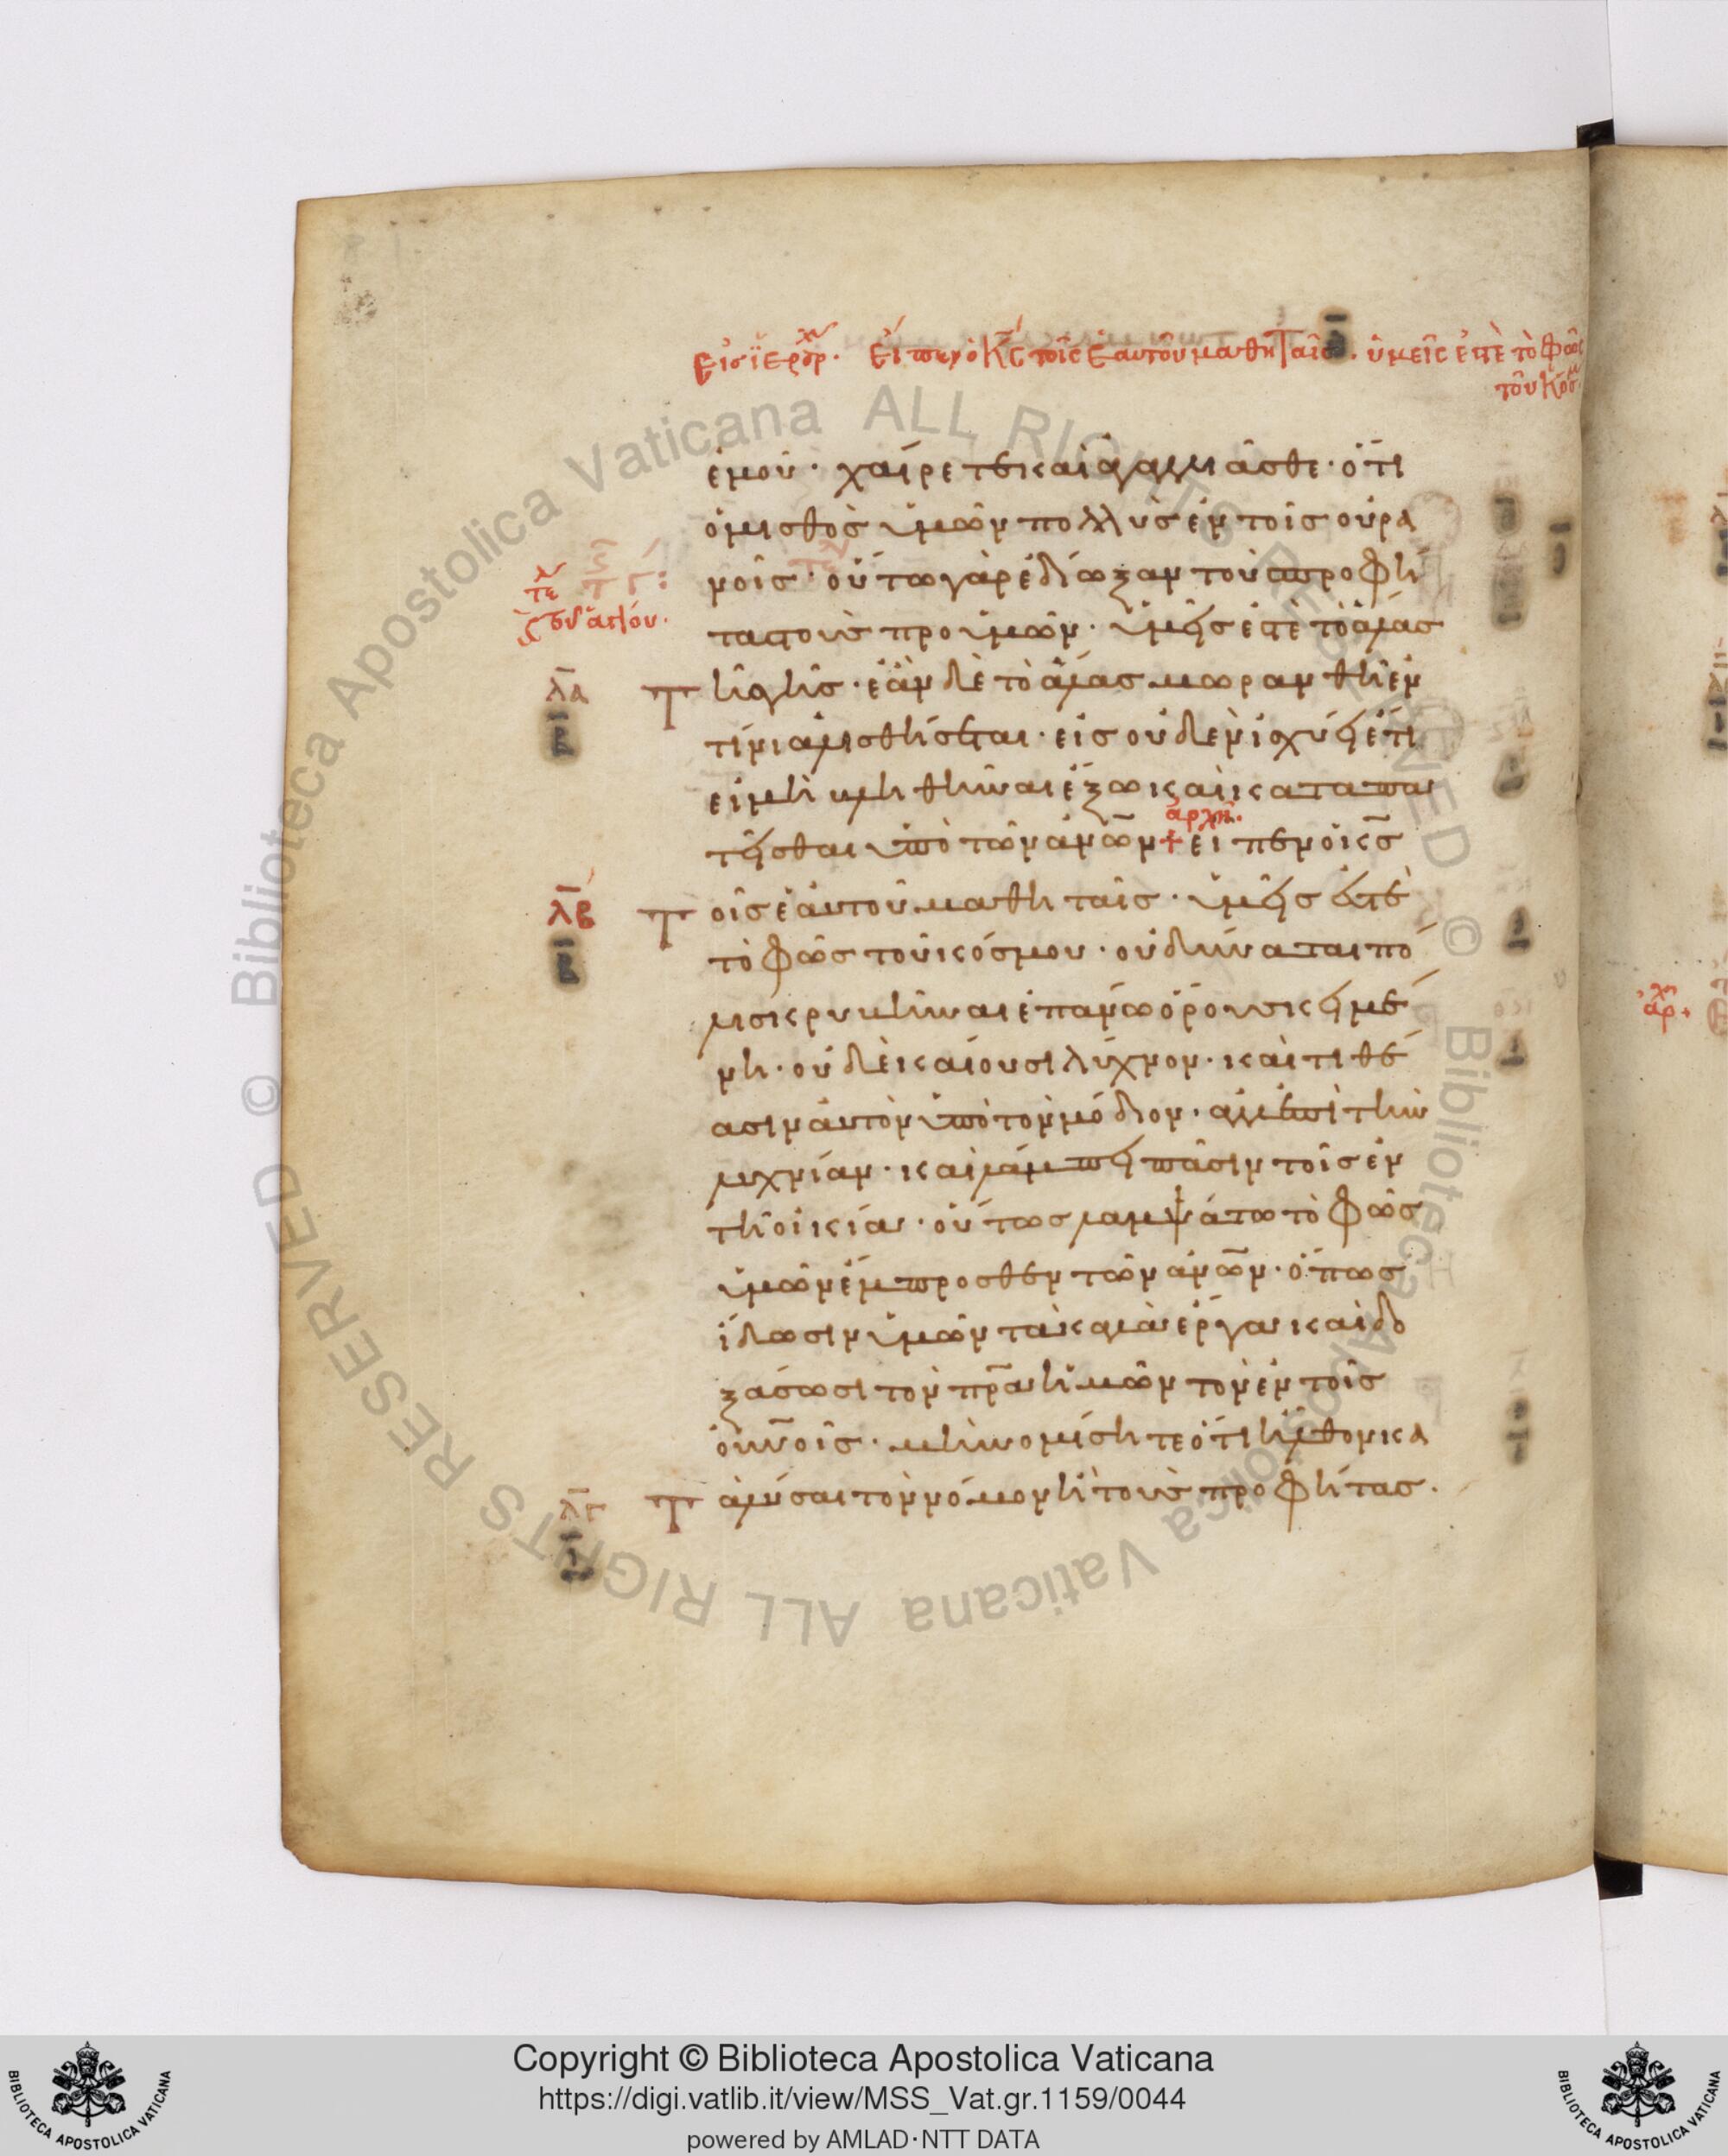 εἰσ ἱεράρχ. εἶπεν ὁ κς τοῖς ἑαυτοῦ μαθηταῖς. ὑμεῖς ἐστὲ τὸ φῶς
τοῦ κόσμ
ἐμοῦ· χαίρετε καὶ ἀγαλλιᾶσθε· ὅτι
ὁ μισθὸς ὑμῶν πολλὺς ἐν τοῖς οὐρα
νοῖς· οὕτω γὰρ ἐδίωξαν τοὺς προφή
τας τοὺς προ ὑμῶν· ὑμεῖς ἐστὲ τὸ ἅλας
τε
τῆς γῆς· ἐὰν δὲ τὸ ἅλας μωρανθῆ ἐν
λα
τίνι ἁλισθήσεται· εἰς οὐδὲν ἰσχύει ἔτι
εἰ μὴ βληθῆναι ἔξω καὶ καταπα
ἀρχὴ.
τεῖσθαι ὑπὸ τῶν ἀνων + εἶπεν ὁ κς
λβ
τοῖς ἑαυτοῦ μαθηταῖς· ὑμεῖς ἐστὲ
τὸ φῶς τοῦ κόσμου· οὐ δύναται πό
λις κρυβῆναι ἐπάνω ὄρους κειμέ
νη· οὐδὲ καίουσι λύχνον· καὶ τιθέ
ασιν αὐτὸν ὑπὸ τὸν μόδιον· ἀλλ' ἐπὶ τὴν
λυχνίαν· καὶ λάμπει πᾶσιν τοῖς ἐν
τῆ οἰκία· οὕτως λαμψάτω τὸ φῶς
ὑμῶν ἔμπροσθεν τῶν ἀνων· ὅπως
ἴδωσιν ὑμῶν τὰ καλὰ ἔργα καὶ δο
ξάσωσι τὸν πρα ἡμῶν τὸν ἐν τοῖς
οὐνοῖς· μὴ νομίσητε ὅτι ἦλθον κα
λγ
ταλύσαι τὸν νόμον ἢ τοὺς προφήτας.
Copyright © Biblioteca Apostolica Vaticana
https://digi.vatlib.it/view/MSS_Vat.gr.1159/0044
powered by AMLAD·NTT DATA
BIBLIOTECA APOSTOLICA VATICANA
BIBLIOTECA APOSTOLICA VATICANA
© Biblioteca Apostolica Vaticana ALL RIGHTS RESERVED
© Biblioteca Apostolica Vaticana ALL RIGHTS RESERVED